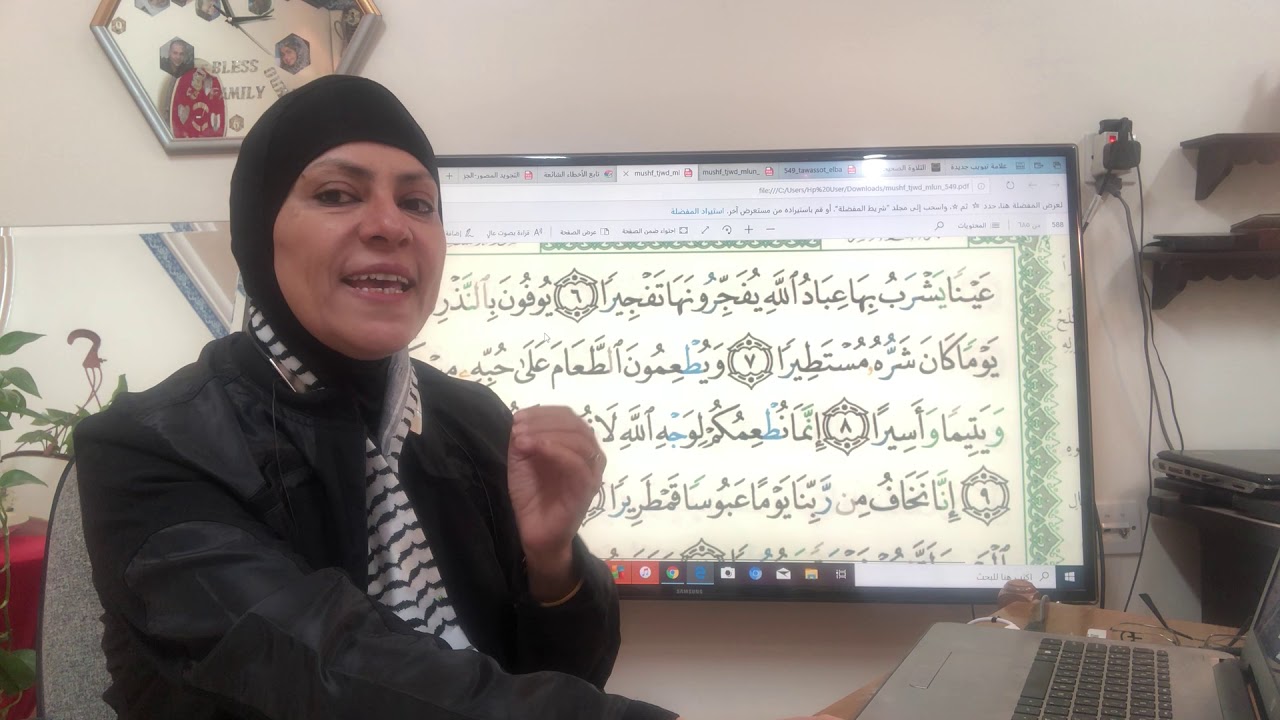 BLESS
OUR
FAMILY
علامة تبويب جديدة
549_tawassot_elba
mushf_tjwd_mlun_
mushf_tjwd_ml
تابع الأخطاء الشائعة
التجويد المصور-الجز
file:///C:/Users/Hp%20User/Downloads/mushf_tjwd_mlun_549.pdf
استيراد المفضلة
588 من ٦٦٥
المحتويات
احتواء ضمن الصفحة
عرض الصفحة
قراءة بصوت عالٍ
إضافة
عَيْنًا يَشْرَبُ بِهَا عِبَادُ ٱللَّهِ يُفَجِّرُونَهَا تَفْجِيرًا ٦ يُوفُونَ بِٱلنَّذْرِ
يَوْمًا كَانَ شَرُّهُۥ مُسْتَطِيرًا ٧ وَيُطْعِمُونَ ٱلطَّعَامَ عَلَىٰ حُبِّهِۦ
وَيَتِيمًا وَأَسِيرًا ٨ إِنَّمَا نُطْعِمُكُمْ لِوَجْهِ ٱللَّهِ لَا
٩ إِنَّا نَخَافُ مِن رَّبِّنَا يَوْمًا عَبُوسًا قَمْطَرِيرًا
اكتب هنا للبحث
SAMSUNG